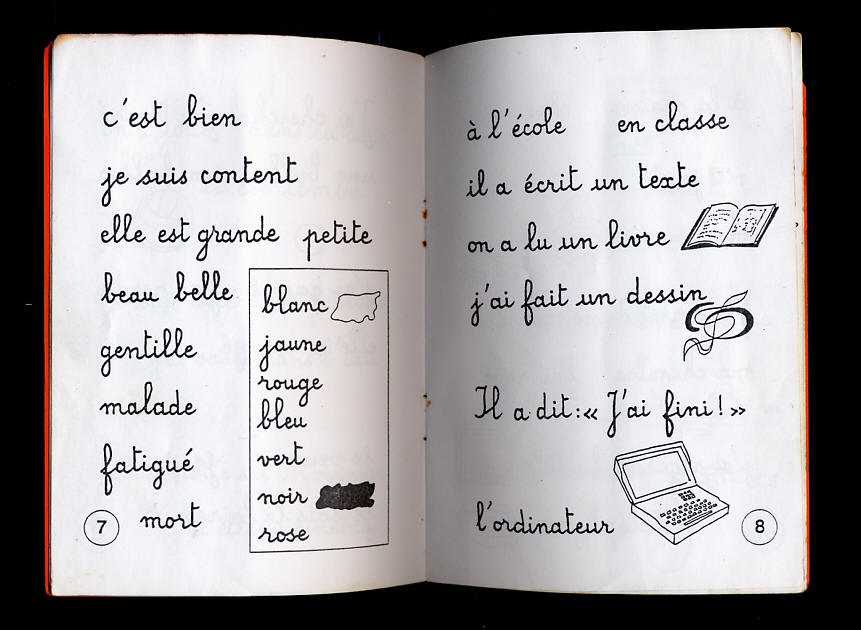 c'est bien
je suis content
elle est grande petite
beau belle
gentille
malade
fatigué
mort
blanc
jaune
rouge
bleu
vert
noir
rose
7
à l'école en classe
il a écrit un texte
on a lu un livre
j'ai fait un dessin
Il a dit : « J'ai fini ! »
l'ordinateur
8